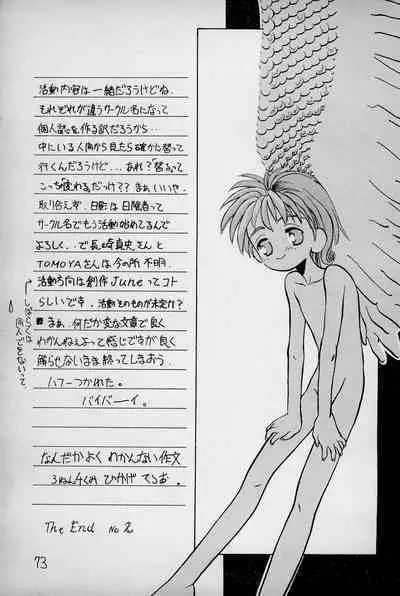 活動内容は一緒だろうけどね
それぞれが違うサークル名になって
個人誌を作る訳だろうから…
中にいる人間から見たら確かに替って
行くんだろうけど…、あれ？替るって
こっち使れるだっけ？？まぁいいや。
取り合えず、日影は日陰者って
サークル名でもう活動始めてるんで
よろしく。で長崎真央さんと
TOMOYAさんは今の所不明。
活動方向は創作Juneってコト
らしいです、活動そのものが未定か？
しばらくは
同人できないって
まぁ、何だか変な文章で良く
わかんねえよって感じですが良く
解らせないまま終ってしまおう。
ハフーつかれた。
バイバーイ。
なんだかよく わかんない作文
3ねん4くみ ひかげ てるお。
The End No 2
73